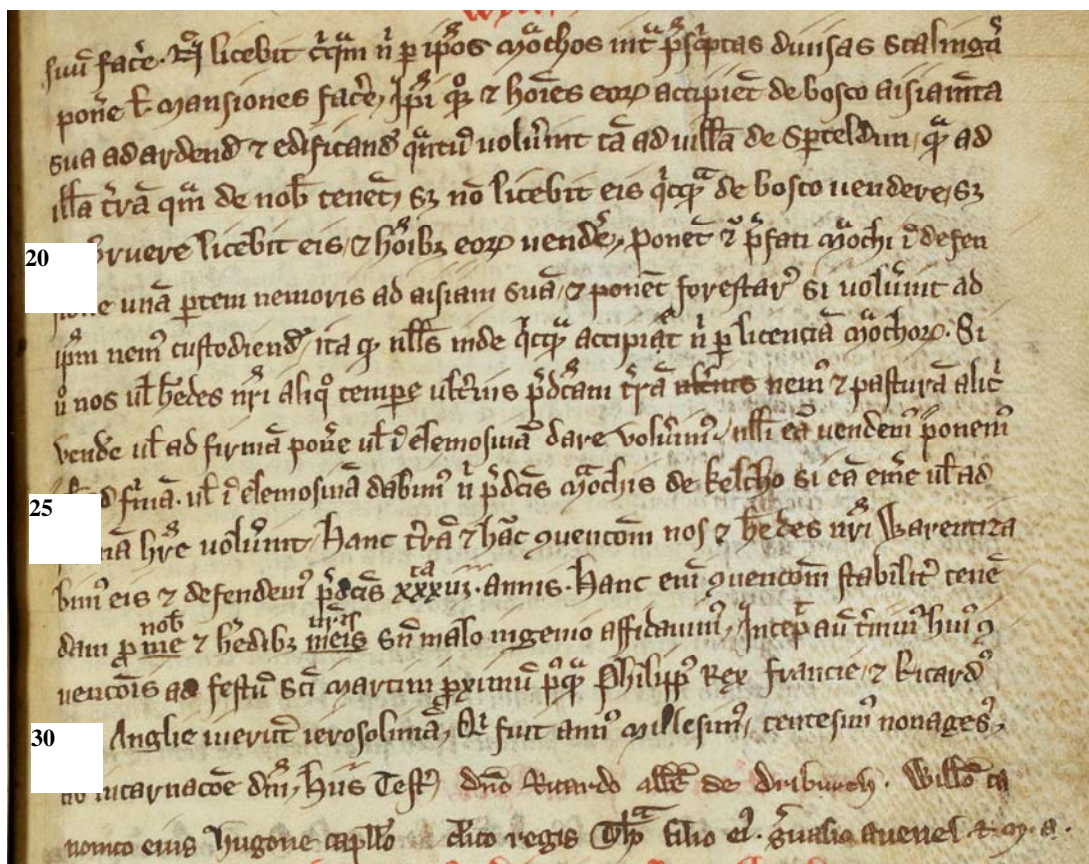 suū fac̄e. Nͥ licebit cͥqͣm nͥ p ip̄os mͦchos intͣ p̄sͨptas diuisas Scalingā
pon̄e ł mansiones fac̄e, Ip̄i qͦꝫ ⁊ hoīes eoꝝ accipiēt de bosco aisiam̄ta
sua ad ardend̄ ⁊ edificand̄ qͣntū uolūint tā ad uillā de Sp̄teldun, qͣ ad
illā t̄rā qͣm de nob̄ tenēt, sꝫ nō licebit eis qͥcqͣ de bosco uendere, sꝫ
20 bruere licebit eis, ⁊ hoībꝫ eoꝝ uend̄e, ponēt ⁊ p̄fati mͦchi ī defen
sione unā p̄tem nemoris ad aisiam suā, ⁊ ponēt forestar̄ si uolūint ad
ip̄m nem̄ custodiend̄, ita qͦ nll̄s inde qͥcqͣ accipiat nͥ p licenciā mͦchoꝝ. Si
ũ nos ul̄ h̄edes nr̄i aliqͦ tempe ult̄ius p̄dc̄am t̄rā ult̄ius nem̄ ⁊ pasturā alic̄
vend̄e ul̄ ad firmā pon̄e ul̄ ī elemosinā dare volūim̄, nll̄i eā uendem̄ ponem̄
25 ad f̄mā. ul̄ ī elemosinā dabim̄ nͥ p̄dc̄is mͦchis de kelcho si eā em̄e ul̄ ad
h̄re uolūint, hanc t̄rā ⁊ hāc ꝯuenc̄om nos ⁊ h̄edes nr̄i Warentiza
bim̄ eis ⁊ defendem̄ p̄dc̄is xxxiii.ᵗᵃ annis. hanc em̄ ꝯuenc̄om stabilit̄ tenē
dam p̄ me nob̄ ⁊ h̄edibꝫ meis nr̄is sn̄ malo ingenio affidauim̄, Incep̄ aū t̄min̄ hui̾ ꝯ
uenc̄ois ad festū sc̄i martini p̄ximū p̄qͣ Philipp̄ Rex francie, ⁊ Ricard̄
30 Anglie iuerūt ierosolimā, Qͥ fuit ann̄ millesim̄, centesim̄ nonages̄,
ab incarnac̄oe dn̄i, hiis Test̄, dn̄o Ricardo abb̄e de driburch. Will̄o ca
nonico eius hugone capll̄o cl̄ico regis Thͣ filio ei̾. Ḡuasio auenel. ⁊. m. a.